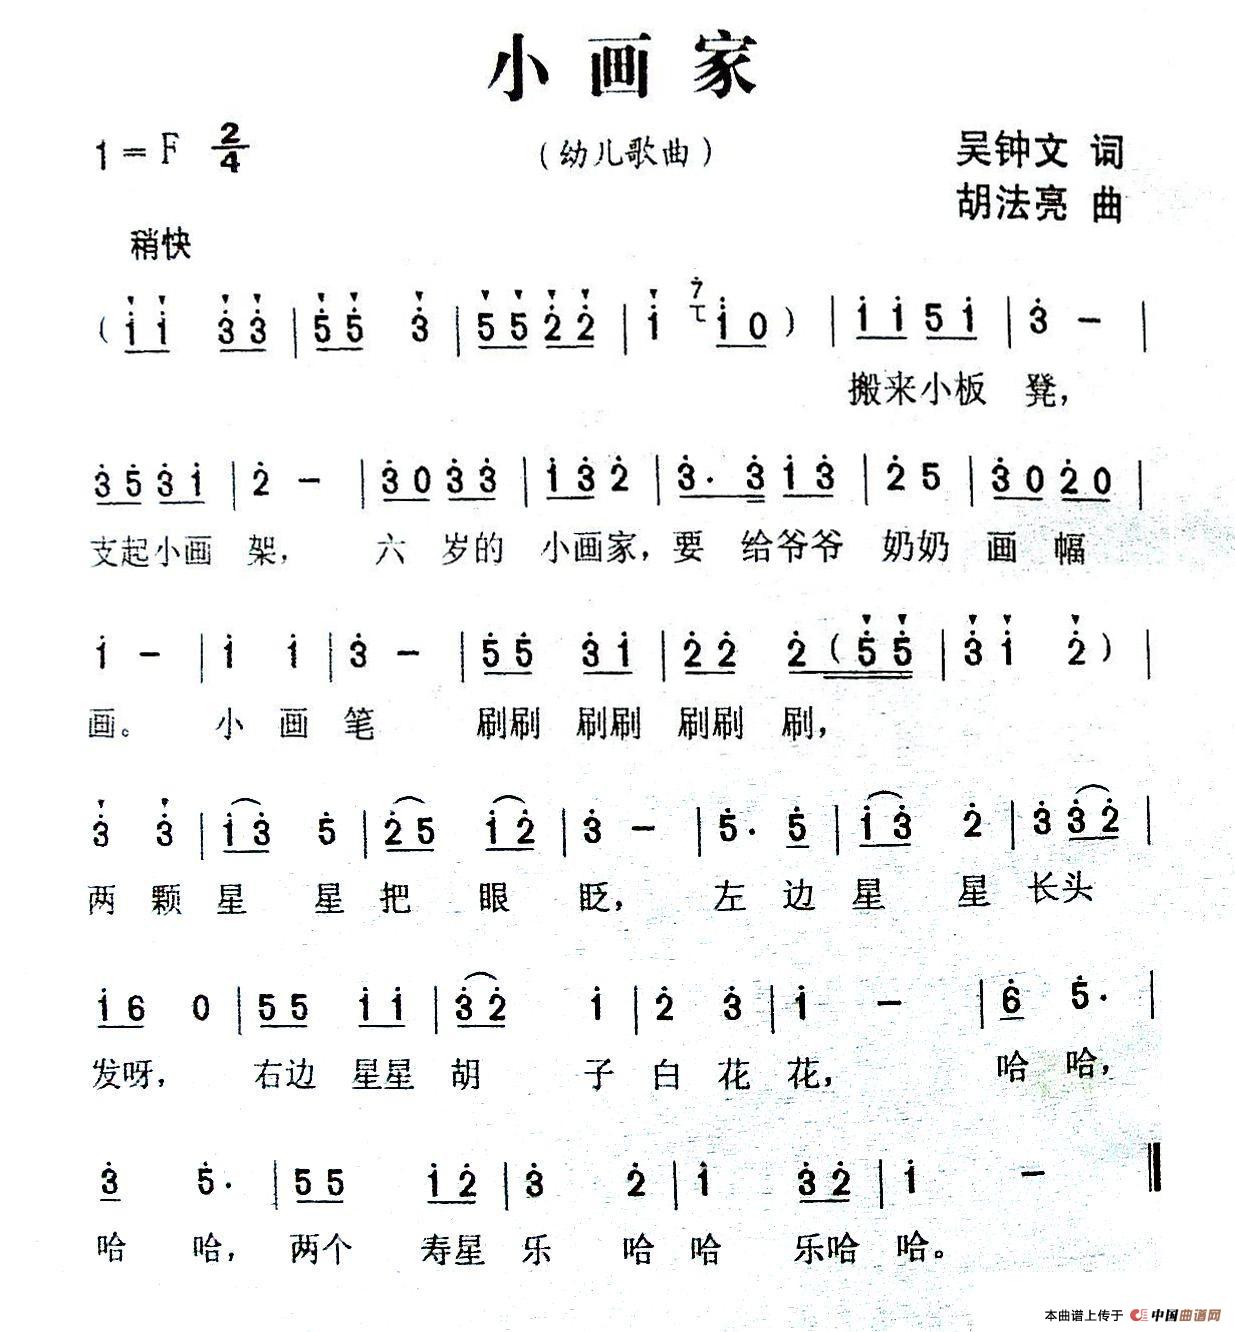 小画家
1=F 2/4
(幼儿歌曲)
吴钟文 词
胡法亮 曲
稍快
( 1̇ 1̇ 3̇ 3̇ | 5̇ 5̇ 3̇ | 5̇ 5̇ 2̇ 2̇ | 1̇ 7̇ 1̇ 0 ) | 1̇ 1̇ 5 1̇ | 3̇ - |
搬来小板 凳,
3̇ 5̇ 3̇ 1̇ | 2̇ - | 3̇ 0 3̇ 3̇ | 1̇ 3̇ 2̇ | 3̇. 3̇ 1̇ 3̇ | 2̇ 5 | 3̇ 0 2̇ 0 |
支起小画 架, 六 岁的 小画家, 要 给爷爷 奶奶 画 幅
1̇ - | 1̇ 1̇ | 3̇ - | 5̇ 5̇ 3̇ 1̇ | 2̇ 2̇ 2̇ ( 5̇ 5̇ | 3̇ 1̇ 2̇ ) |
画。 小 画 笔 刷刷 刷刷 刷刷 刷,
3̇ 3̇ | 1̇ 3̇ 5̇ | 2̇ 5 1̇ 2̇ | 3̇ - | 5̇. 5̇ | 1̇ 3̇ 2̇ | 3̇ 3̇ 2̇ |
两 颗 星 星 把 眼 眨, 左 边 星 星 长头
1̇ 6 0 | 5 5 1̇ 1̇ | 3̇ 2̇ 1̇ | 2̇ 3̇ | 1̇ - | 6̇ 5̇. |
发呀, 右边 星星 胡 子 白 花 花, 哈 哈,
3̇ 5̇. | 5 5 1̇ 2̇ | 3̇ 2̇ | 1̇ 3̇ 2̇ | 1̇ - ‖
哈 哈, 两个 寿星 乐 哈 哈 乐哈 哈。
本曲谱上传于 中国曲谱网